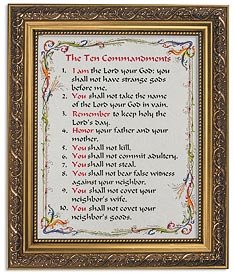 The Ten Commandments
1. I am the Lord your God: you
shall not have strange gods
before me.
2. You shall not take the name
of the Lord your God in vain.
3. Remember to keep holy the
Lord's day.
4. Honor your father and your
mother.
5. You shall not kill.
6. You shall not commit adultery.
7. You shall not steal.
8. You shall not bear false witness
against your neighbor.
9. You shall not covet your
neighbor's wife.
10. You shall not covet your
neighbor's goods.